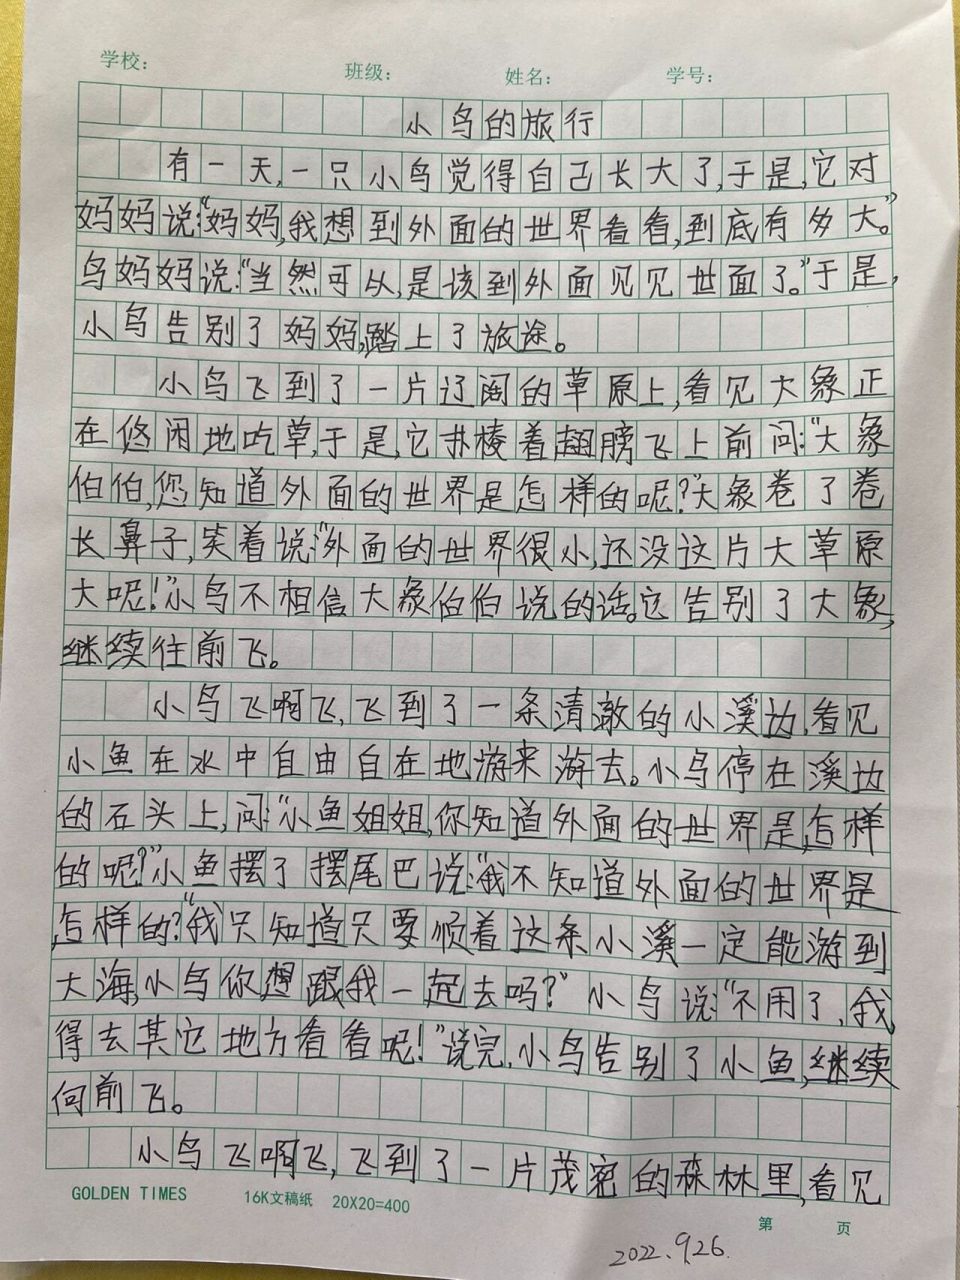 学校： 班级： 姓名： 学号：
小鸟的旅行
有一天,一只小鸟觉得自己长大了,于是,它对
妈妈说:“妈妈,我想到外面的世界看看,到底有多大。”
鸟妈妈说:“当然可以,是该到外面见见世面了。”于是,
小鸟告别了妈妈,踏上了旅途。
小鸟飞到了一片辽阔的草原上,看见大象正
在悠闲地吃草,于是,它扑棱着翅膀飞上前问:“大象
伯伯,您知道外面的世界是怎样的呢?”大象卷了卷
长鼻子,笑着说:“外面的世界很小,还没这片大草原
大呢!”小鸟不相信大象伯伯说的话。它告别了大象,
继续往前飞。
小鸟飞啊飞,飞到了一条清澈的小溪边,看见
小鱼在水中自由自在地游来游去。小鸟停在溪边
的石头上,问:“小鱼姐姐,你知道外面的世界是怎样
的呢?”小鱼摆了摆尾巴说:“我不知道外面的世界是
怎样的?“我只知道只要顺着这条小溪一定能游到
大海,小鸟你想跟我一起去吗?”小鸟说:“不用了,我
得去其它地方看看呢!”说完,小鸟告别了小鱼,继续
向前飞。
小鸟飞啊飞,飞到了一片茂密的森林里,看见
GOLDEN TIMES 16K文稿纸 20X20=400
第 页
2022.9.26.